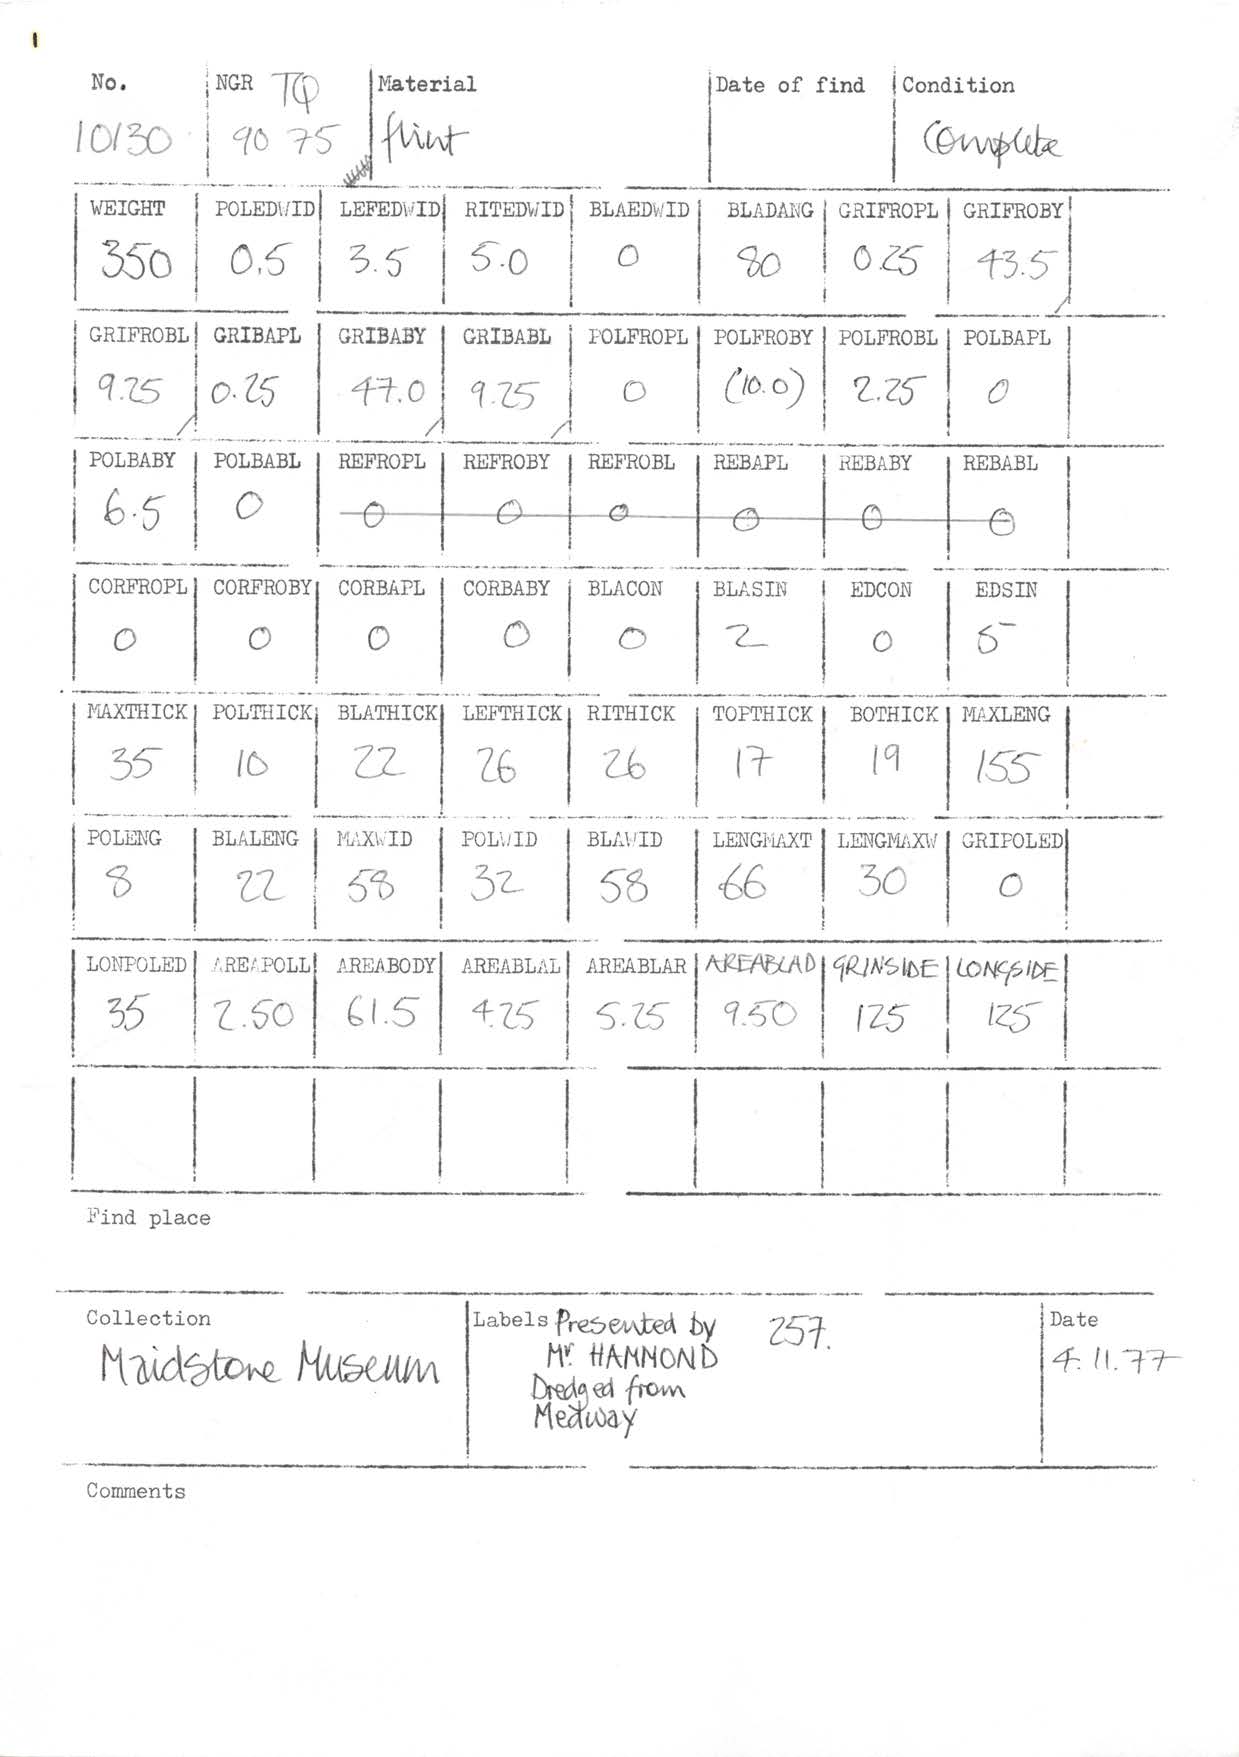 1
No. NGR TQ Material Date of find Condition
10130 90 75 flint complete
WEIGHT POLEDWID LEFEDWID RITEDWID BLAEDWID BLADANG GRIFROPL GRIFROBY
350 0.5 3.5 5.0 0 80 0.25 43.5
GRIFROBL GRIBAPL GRIBABY GRIBABL POLFROPL POLFROBY POLFROBL POLBAPL
9.25 0.25 47.0 9.25 0 (10.0) 2.25 0
POLBABY POLBABL REFROPL REFROBY REFROBL REBAPL REBABY REBABL
6.5 0 0 0 0 0 0 0
CORFROPL CORFROBY CORBAPL CORBABY BLACON BLASIN EDCON EDSIN
0 0 0 0 0 2 0 5
MAXTHICK POLTHICK BLATHICK LEFTHICK RITHICK TOPTHICK BOTHICK MAXLENG
35 10 22 26 26 17 19 155
POLENG BLALENG MAXWID POLWID BLAWID LENGMAXT LENGMAXW GRIPOLED
8 22 58 32 58 66 30 0
LONPOLED AREAPOLL AREABODY AREABLAL AREABLAR AREABLAD GRINSIDE LONGSIDE
35 2.50 61.5 4.25 5.25 9.50 125 125
Find place
Collection Labels Presented by 257. Date
Maidstone Museum Mr. HAMMOND 4.11.77
Dredged from
Medway
Comments